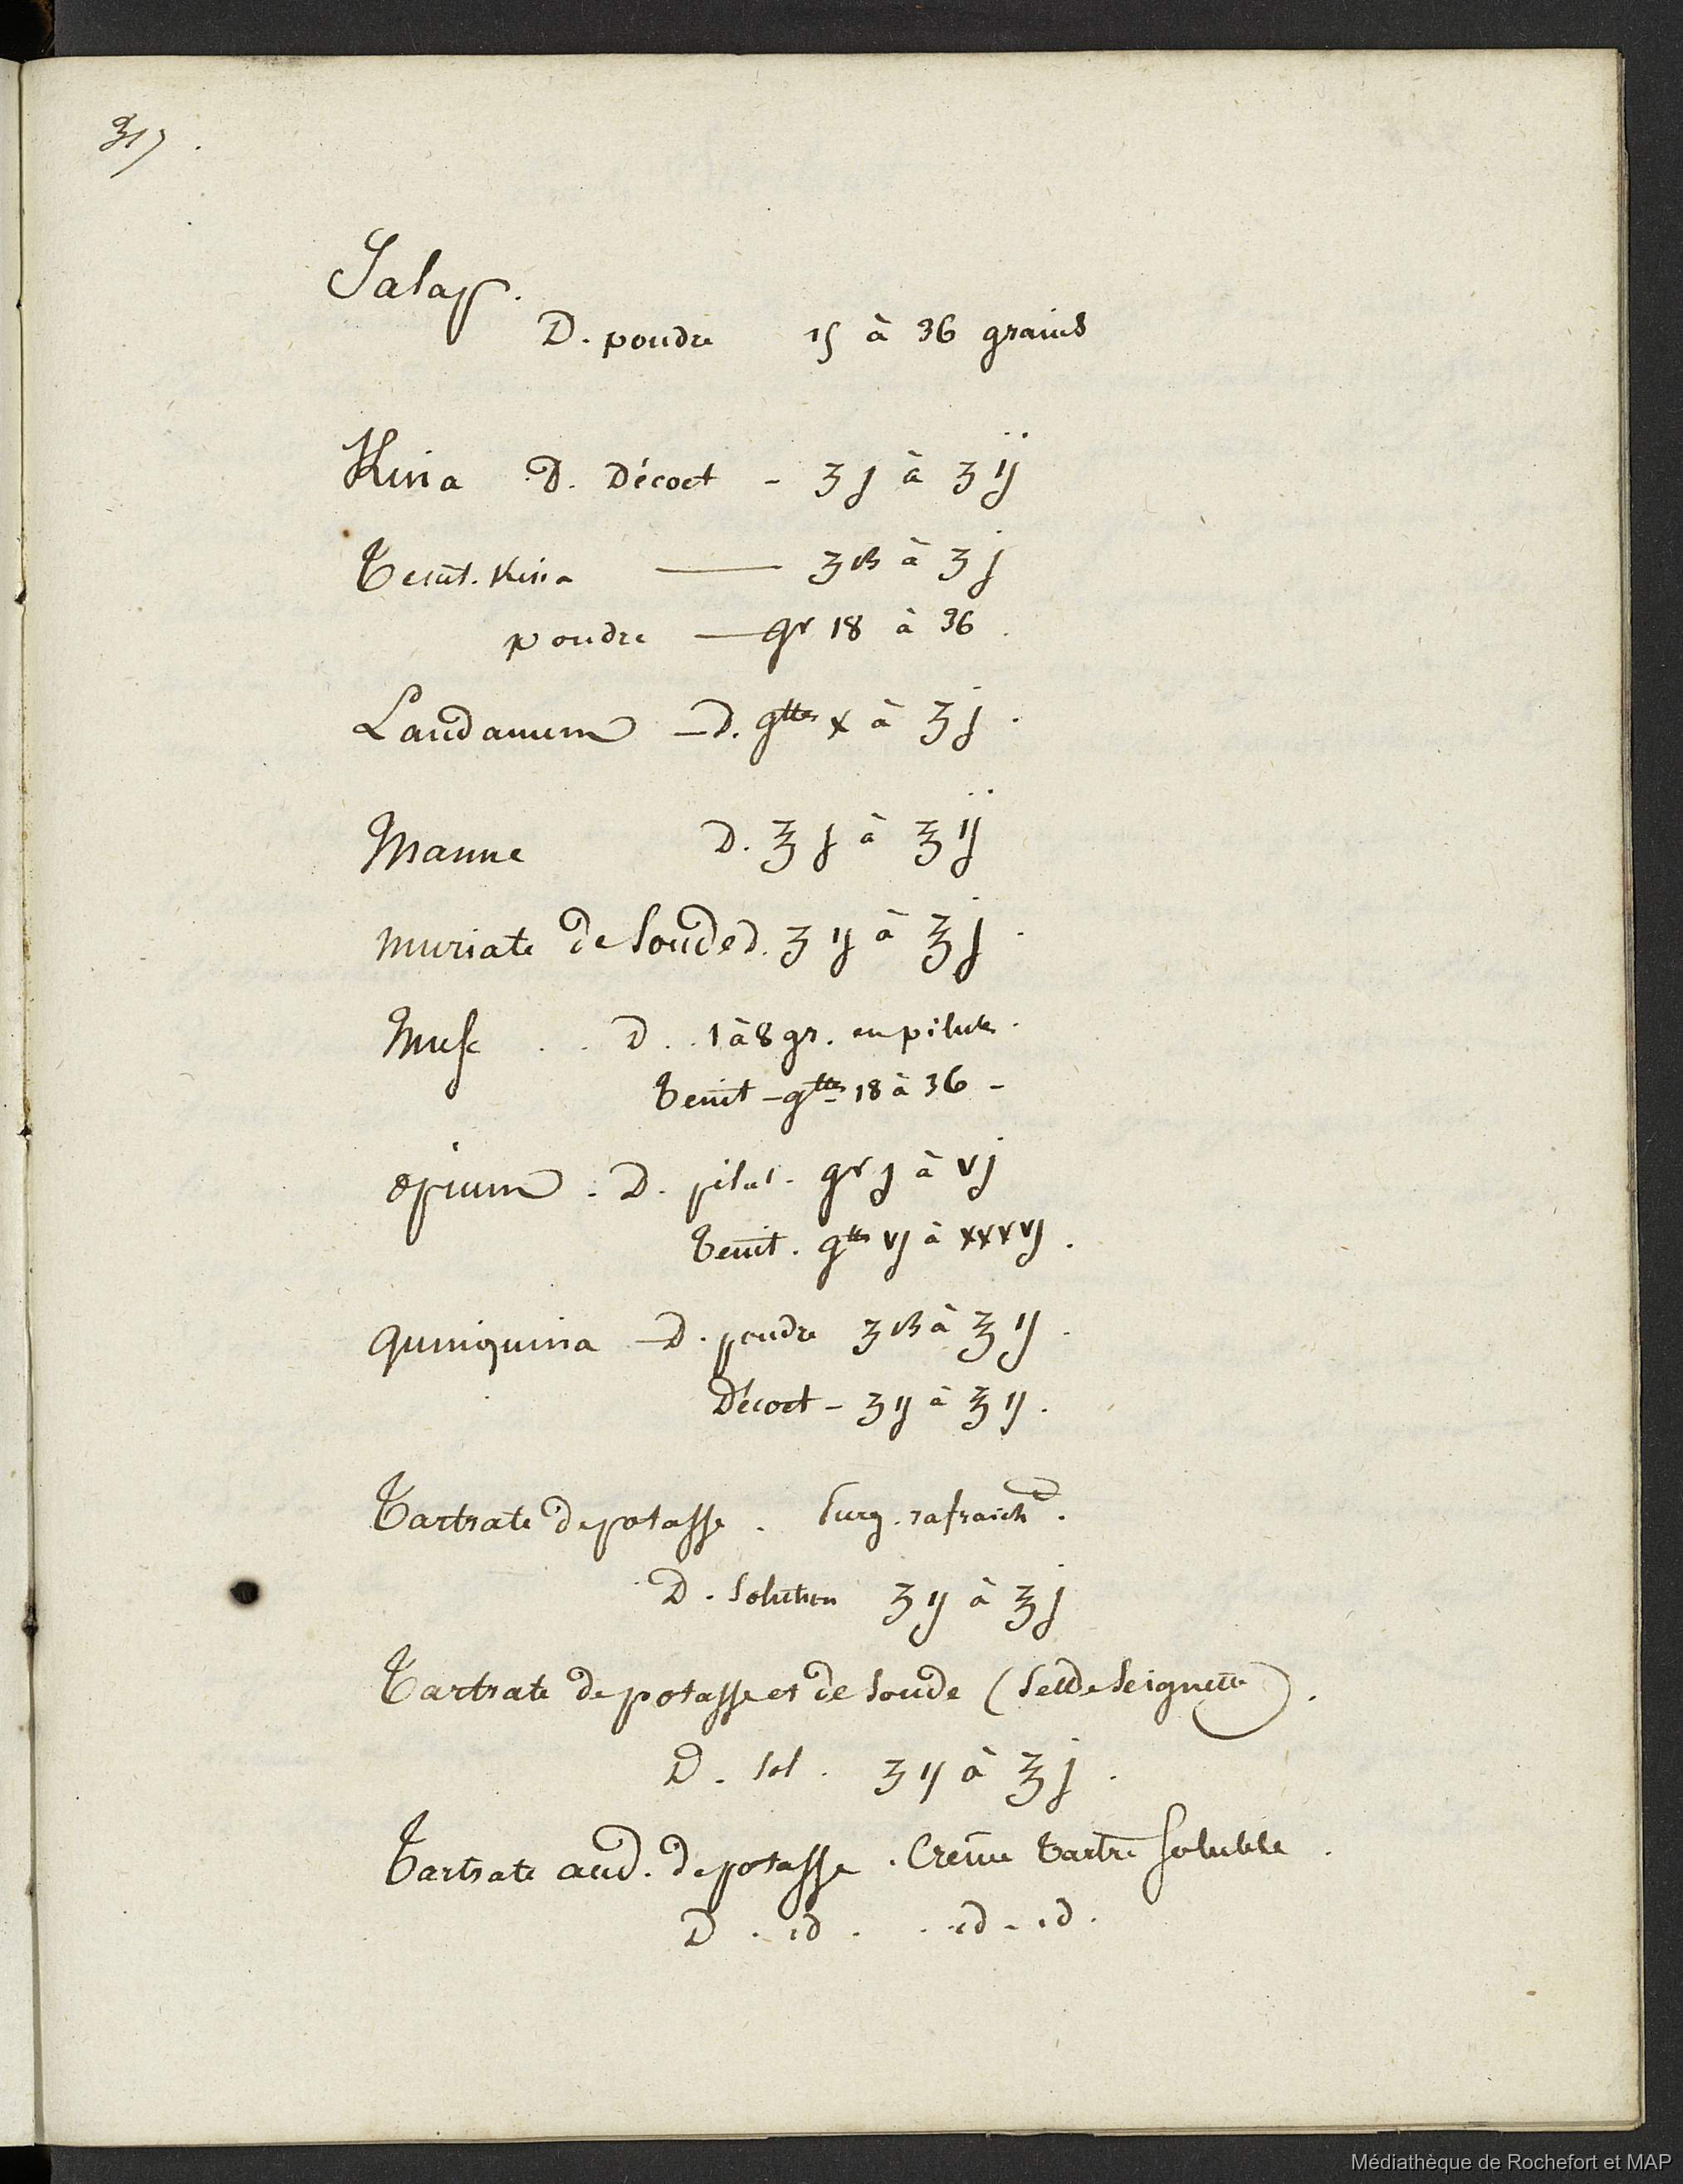 317.
Jalap.
D. poudre 15 à 36 grains
Kina D. Décoct - ʒ j à ʒ ij
Teint. Kina — ʒ ß à ʒ j
poudre — gr 18 à 36.
Laudanum — D. gttes x à ʒ j.
Manne D. ℥ j à ℥ ij
muriate de soude D. ʒ ij à ℥ j.
Musc . . D. . 1 à 8 gr. en pilules.
Teint - gttes 18 à 36 -
opium . D. pilul. gr j à vj
Teint. gttes vj à xxxvj.
quinquina — D. poudre ʒ ß à ℥ ij.
Décoct - ʒ ij à ℥ ij.
Tartrate de potasse . purg. rafraich.
D. Solution ʒ ij à ℥ j
Tartrate de potasse et de soude (sel de seignette).
D. sol. ʒ ij à ℥ j.
Tartrate acid. de potasse . Crême tartre soluble.
D . id . . id - id .
Médiathèque de Rochefort et MAP